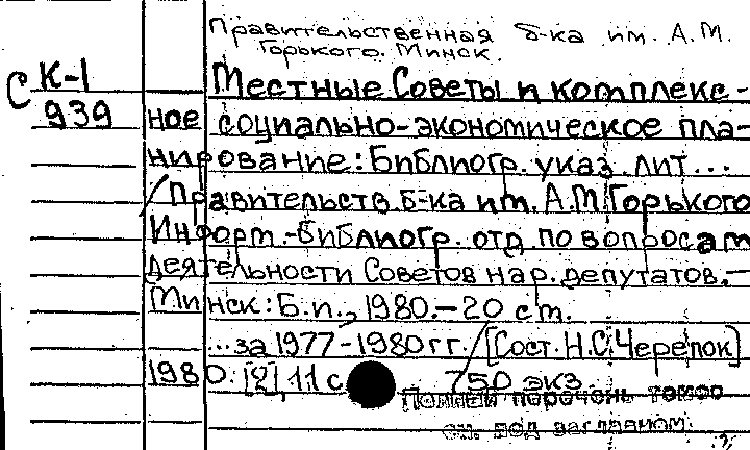 Правительственная б-ка им. А.М.
Горького. Минск.
С К-1
939
Местные Советы и комплекс-
ное социально-экономическое пла-
нирование: Библиогр. указ. лит...
/ Правительств. б-ка им. А.М.Горького
Информ.-библиогр. отд. по вопросам
деятельности Советов нар. депутатов.—
Минск: Б.и., 1980.— 20 см.
...за 1977-1980гг. / [Сост. Н.С.Черепок]
1980. [2], 11 с. 750 экз.
Полный перечень томов
см. под заглавием.